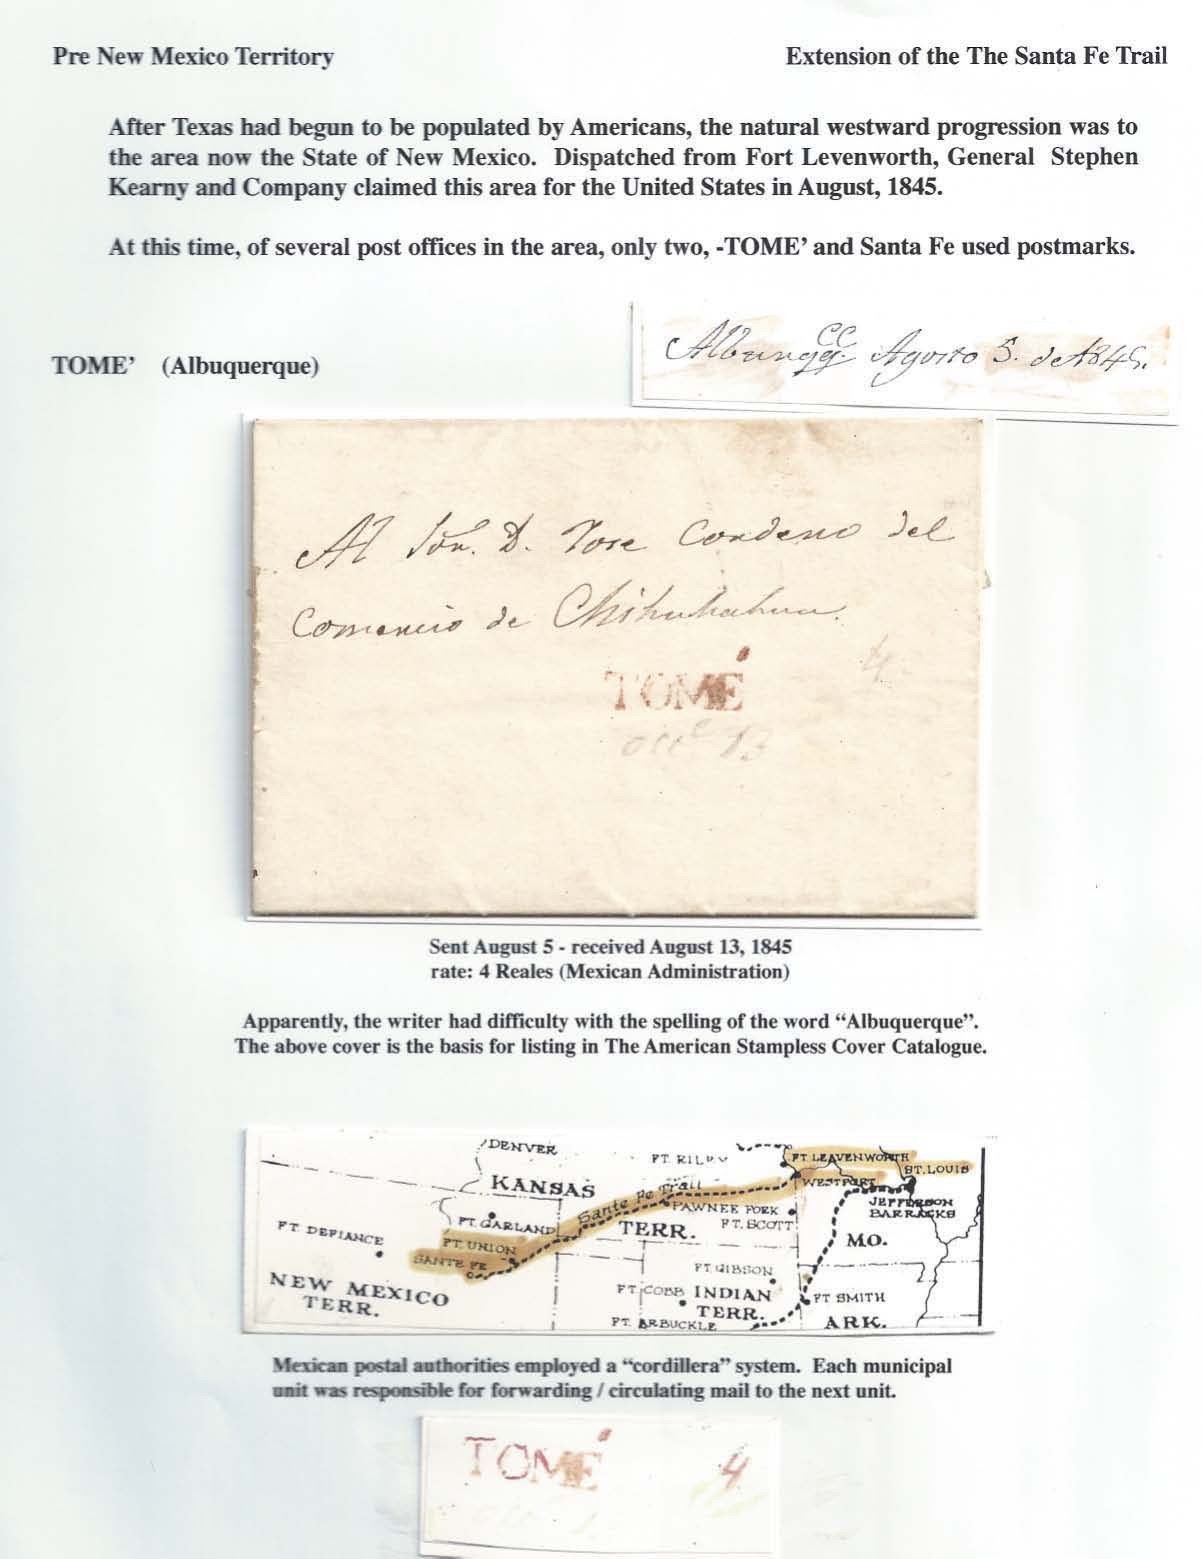 Pre New Mexico Territory
Extension of the The Santa Fe Trail
After Texas had begun to be populated by Americans, the natural westward progression was to
the area now the State of New Mexico. Dispatched from Fort Levenworth, General Stephen
Kearny and Company claimed this area for the United States in August, 1845.
At this time, of several post offices in the area, only two, -TOME’ and Santa Fe used postmarks.
TOME’ (Albuquerque)
Agosto 5. de 1845.
Al Sõr. D. Jose Cordero del
Comercio de Chihuhahua.
TOMÉ
4
13
Sent August 5 - received August 13, 1845
rate: 4 Reales (Mexican Administration)
Apparently, the writer had difficulty with the spelling of the word “Albuquerque”.
The above cover is the basis for listing in The American Stampless Cover Catalogue.
DENVER
FT. RILEY
FT LEAVENWORTH
ST. LOUIS
KANSAS
Sante Fe Trail
WESTPORT
JEFFERSON
BARRACKS
PAWNEE FORK
FT. GARLAND
TERR.
FT. SCOTT
FT. DEFIANCE
FT. UNION
MO.
SANTE FE
FT. GIBSON
NEW MEXICO
TERR.
FT COBB
INDIAN
TERR.
FT SMITH
FT. ARBUCKLE
ARK.
Mexican postal authorities employed a “cordillera” system. Each municipal
unit was responsible for forwarding / circulating mail to the next unit.
TOMÉ 4